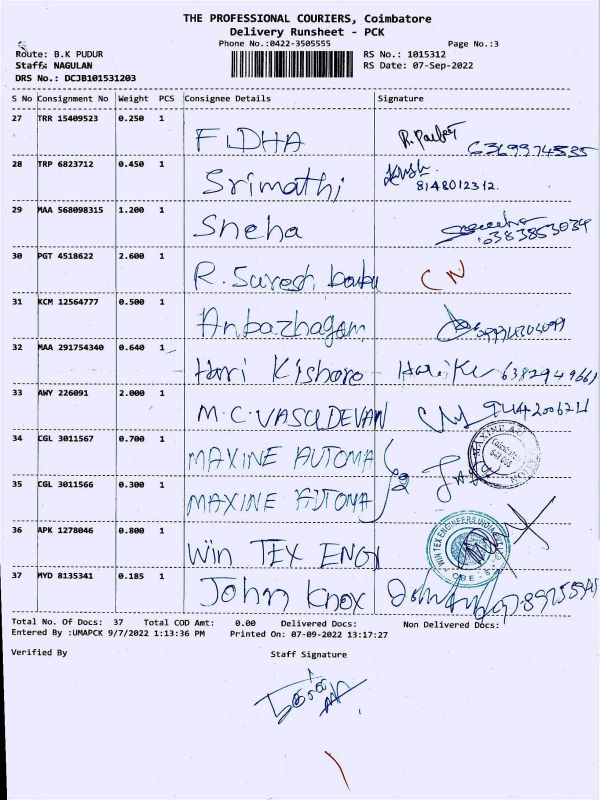 THE PROFESSIONAL COURIERS, Coimbatore
Delivery Runsheet - PCK
Phone No.:0422-3505555 Page No.:3
Route: B.K PUDUR RS No.: 1015312
Staff: NAGULAN RS Date: 07-Sep-2022
DRS No.: DCJB101531203
S No Consignment No Weight PCS Consignee Details Signature
27 TRR 15409523 0.250 1 FIDHA
28 TRP 6823712 0.450 1 Srimathi 8148012312.
29 MAA 568098315 1.200 1 Sneha
30 PGT 4518622 2.600 1 R. Suresh babu CN
31 KCM 12564777 0.500 1 Anbazhagam
32 MAA 291754340 0.640 1 Hari Kishoro 6382949661
33 AWY 226091 2.000 1 M.C. VASUDEVAN
34 CGL 3011567 0.700 1 MAXINE AUTOMA
35 CGL 3011566 0.300 1 MAXINE AUTOMA
36 APK 1278046 0.800 1 Win TEX ENGI WIN TEX ENGINEERS INDIA CBE
37 MYD 8135341 0.185 1 John Knox
Total No. Of Docs: 37 Total COD Amt: 0.00 Delivered Docs: Non Delivered Docs:
Entered By :UMAPCK 9/7/2022 1:13:36 PM Printed On: 07-09-2022 13:17:27
Verified By Staff Signature